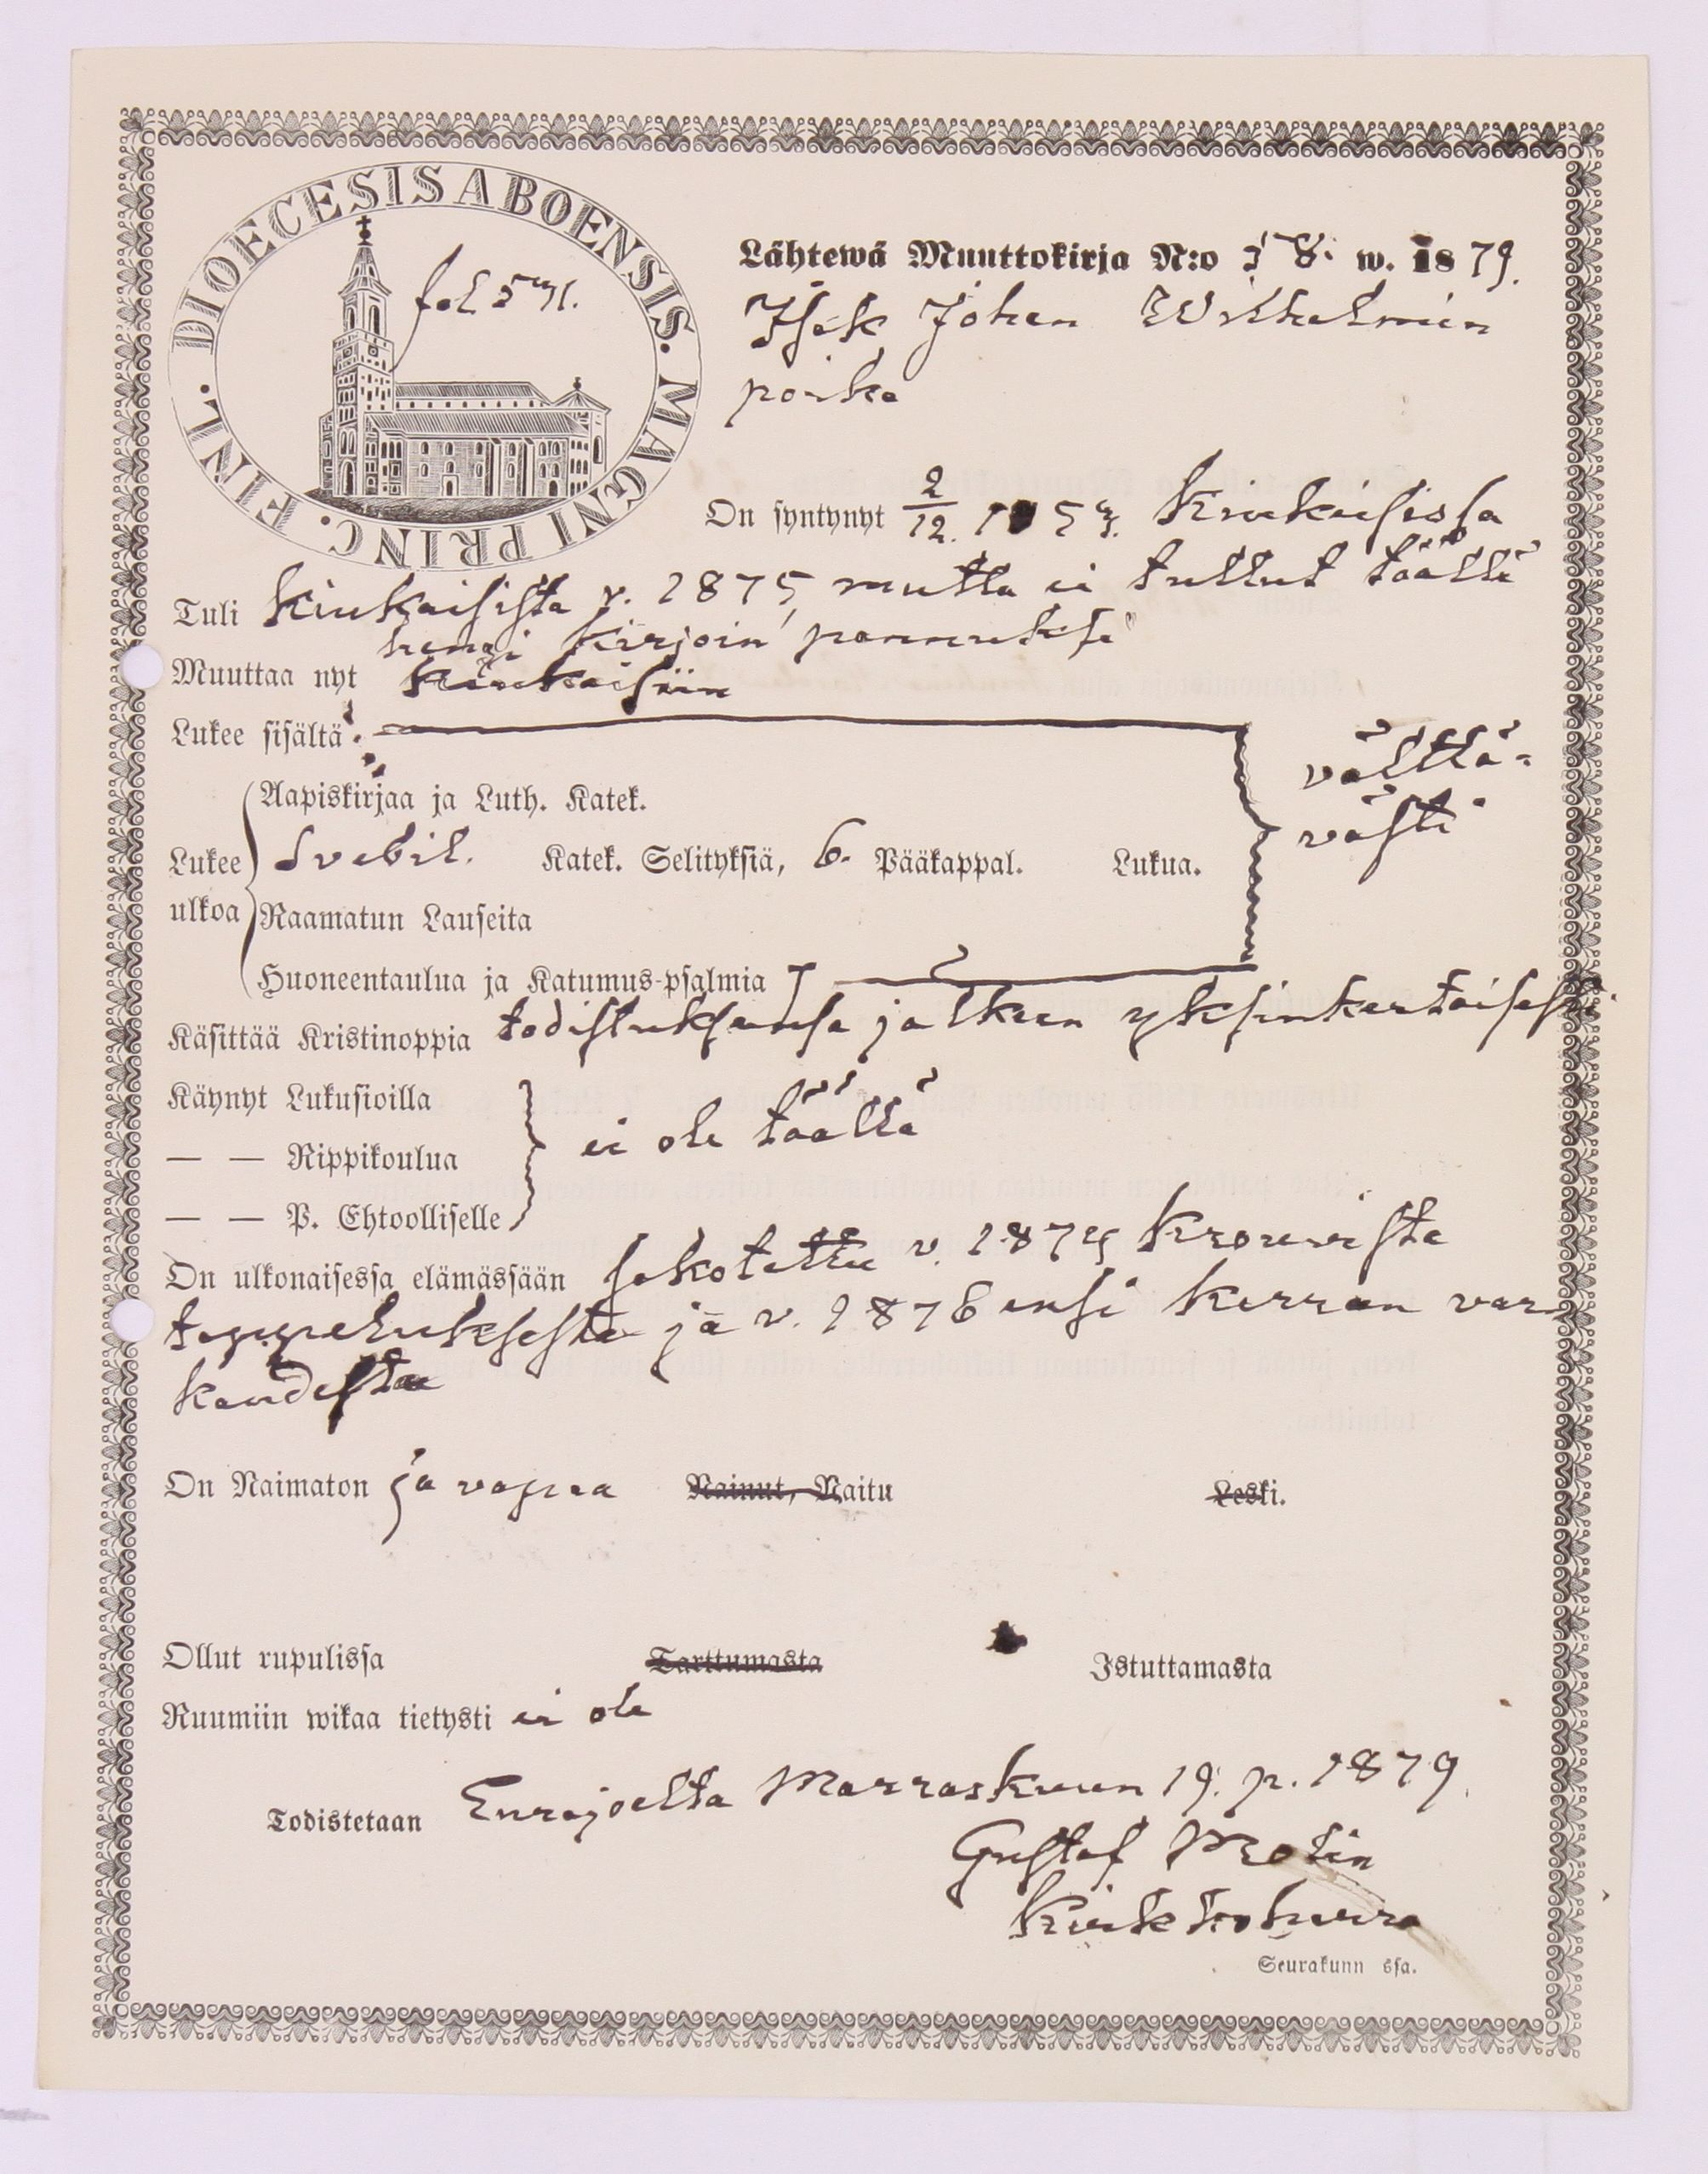 DIOECESIS ABOENSIS. MAGNI PRINC. FINL.
fol 571.
Lähtewä Muuttokirja N:o 58. w. 1879.
Isak Johan Wilhelmin
poika
On syntynyt 2/12. 1853. Kiukaisissa
Tuli Kiukaisista v. 1875, mutta ei tullut täällä
hengi kirjoin pannuksi
Muuttaa nyt Kiukaisiin
Lukee sisältä
välttä-
västi
Aapiskirjaa ja Luth. Katek.
Lukee ulkoa Svebil. Katek. Selityksiä, 6. Pääkappal. Lukua.
Raamatun Lauseita
Huoneentaulua ja Katumus-psalmia 7
Käsittää Kristinoppia todistuksensa jälkeen yksinkertaisesti
Käynyt Lukusioilla
— — Rippikoulua ei ole täällä
— — P. Ehtoolliselle
On ulkonaisessa elämässään sakotettu v. 1874 Krouvista
tappeluksesta ja v. 1876 ensi kerran var
kaudesta
On Naimaton ja vapaa Nainut, Naitu Leski.
Ollut rupulissa Tarttumasta Istuttamasta
Ruumiin wikaa tietysti ei ole
Todistetaan Eurajoelta Marraskuun 19. p. 1879.
Gustaf Molin
Kirkkoherra
Seurakunn ssa.